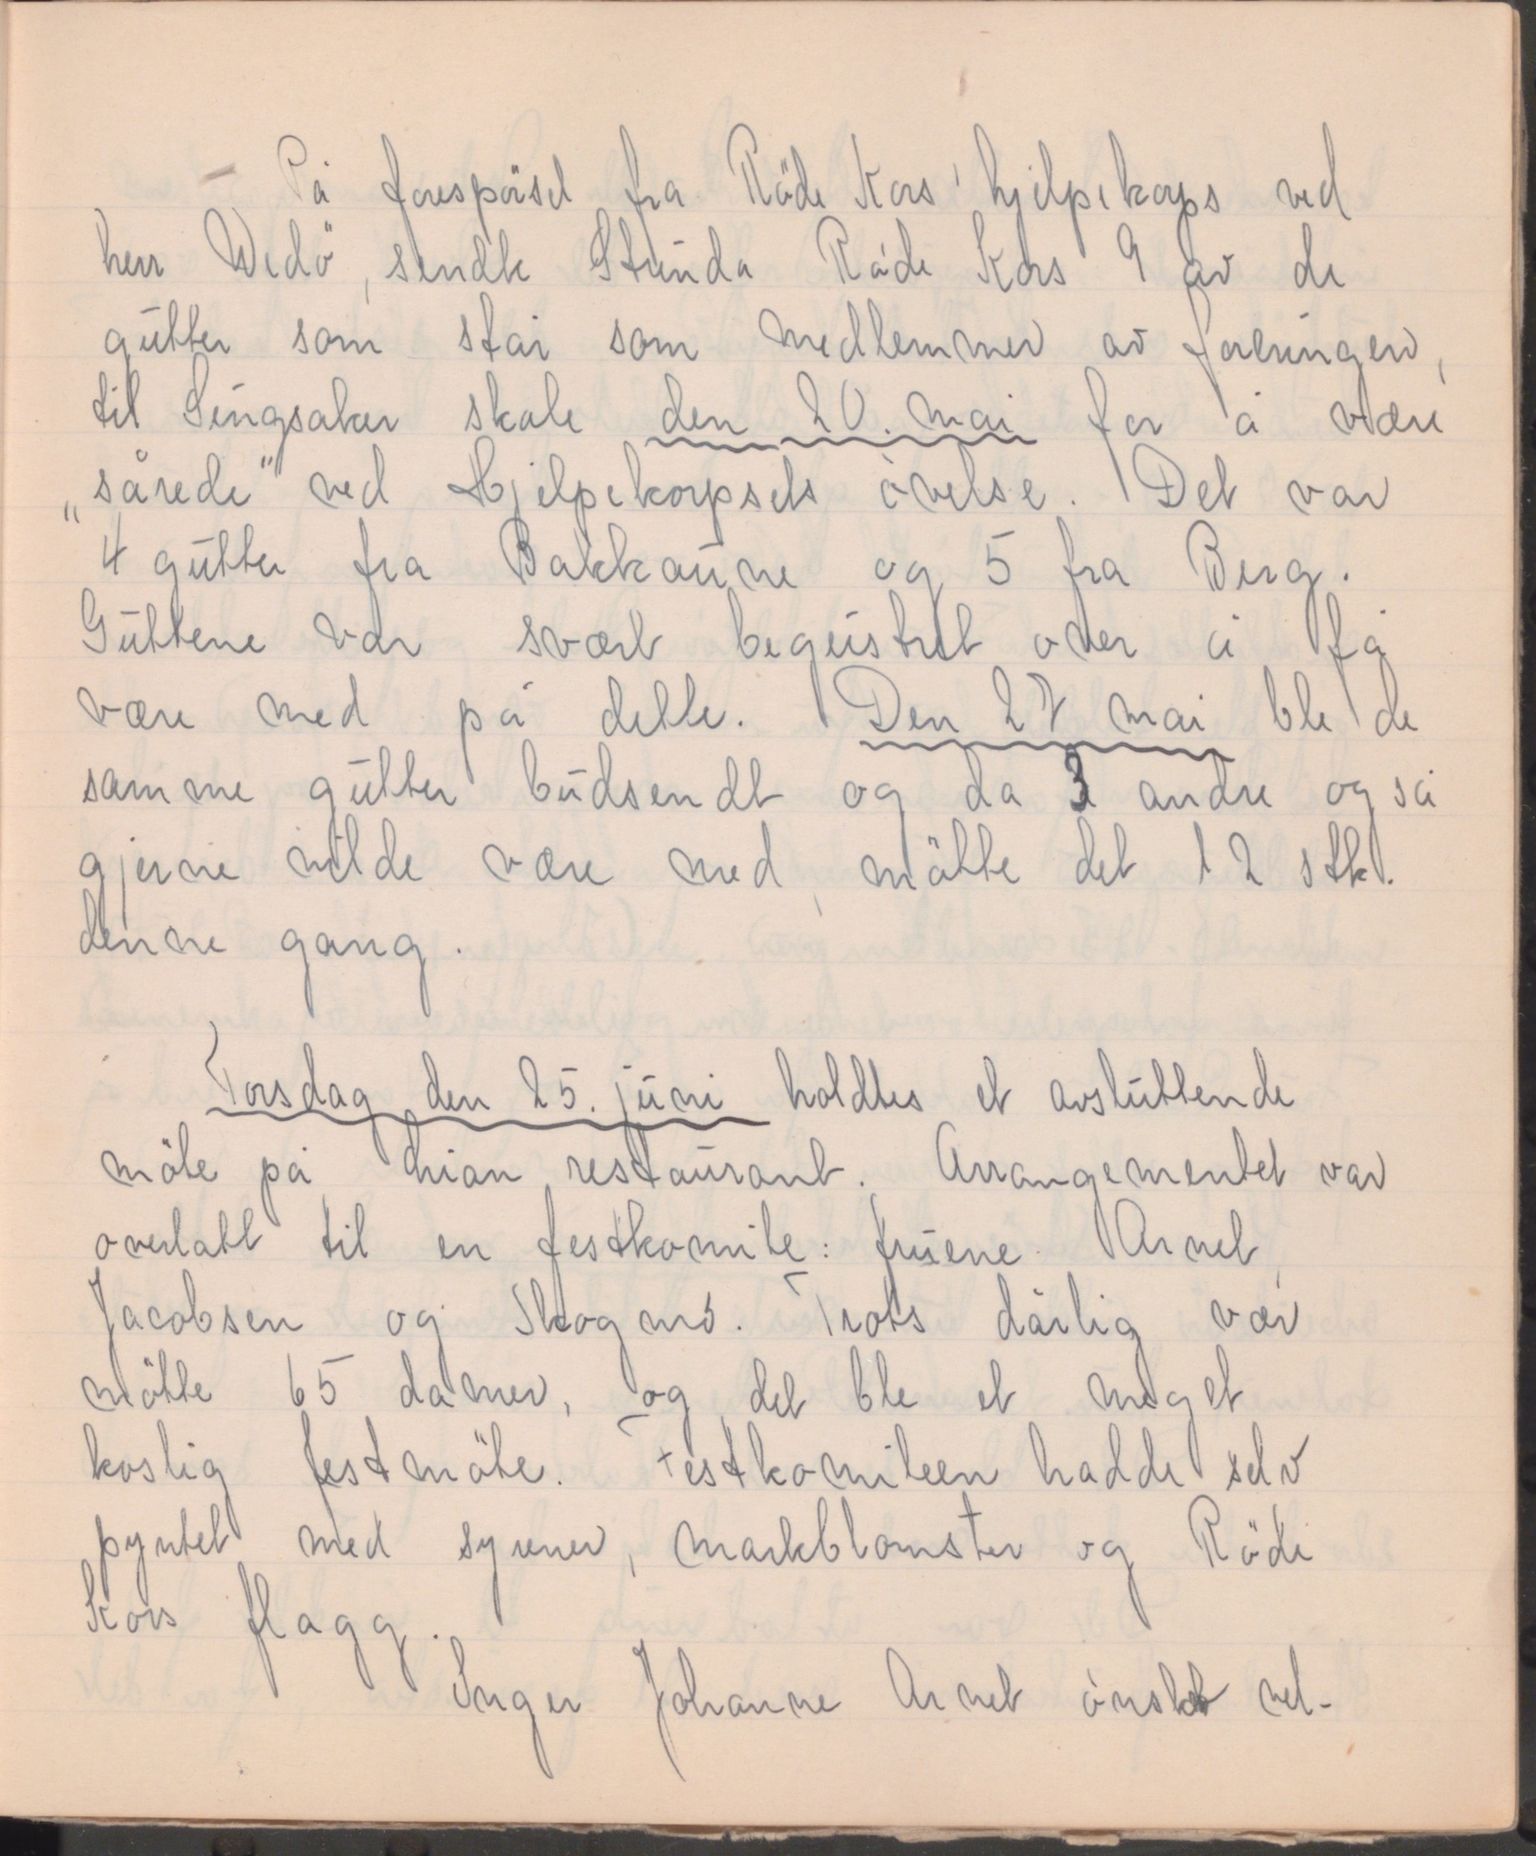 På forespörsel fra Röde Kors' hjelpekorps ved
herr Wedö, sendte Strinda Röde Kors 9 av de
gutter som står som medlemmer av foreningen,
til Singsaker skole den 20. mai for å være
„sårede" ved Hjelpekorpsets övelse. Det var
4 gutter fra Bakkaune og 5 fra Berg.
Guttene var svært begeistret over å få
være med på dette. Den 27 mai ble de
samme gutter budsendt og da 3 andre også
gjerne vilde være med, mötte det 12 stk.
denne gang.
Torsdag den 25. juni holdtes et avsluttende
möte på Lian restaurant. Arrangementet var
overlatt til en festkomite: fruene Arnet,
Jacobsen og Skogmö. Trots dårlig vær
mötte 65 damer, og det ble et meget
koslig festmöte. Festkomiteen hadde selv
pyntet med syrener, markblomster og Röde
Kors flagg.
Inger Johanne Arnet önsket vel-